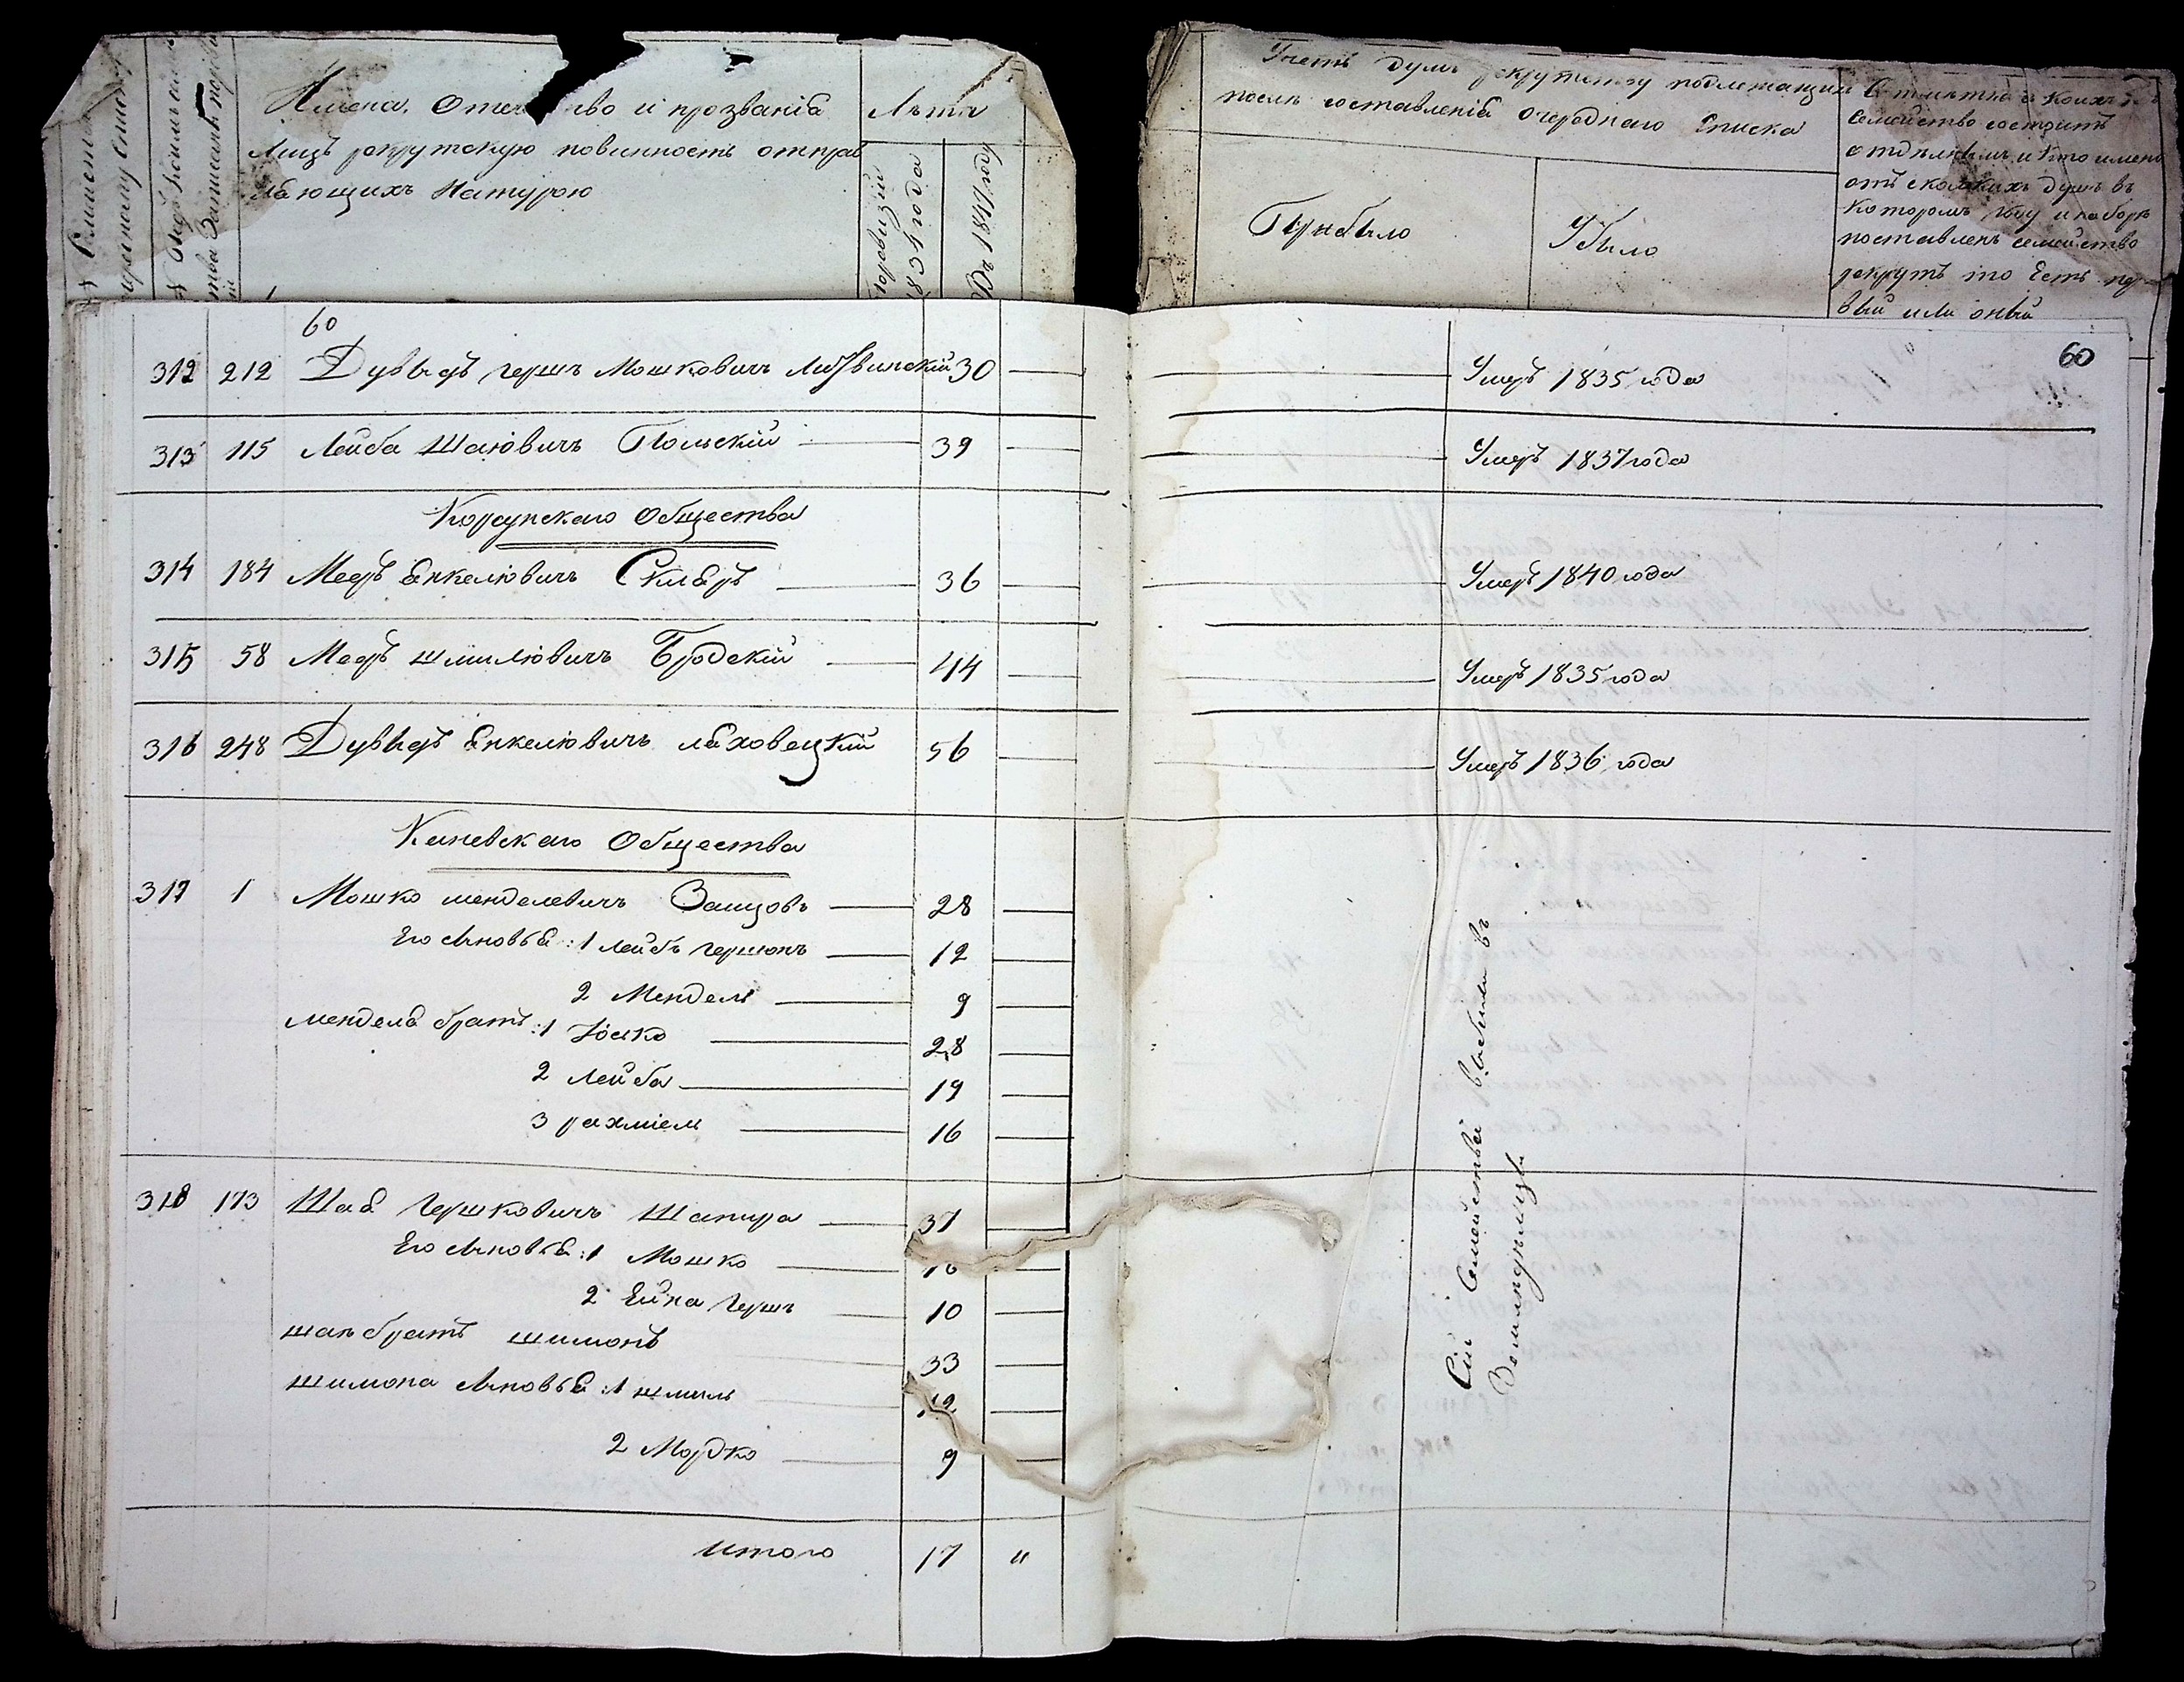 Имена, Отечество и прозванія
Лицъ рекрутскую повинность отправ
ляющихъ Натурою
Лѣта
По ревизіи
1834 года
Въ 1841 году
Учетъ душъ рекрутству подлежащихъ
послѣ составленія Очереднаго Списка
Прибыло
Убыло
Семейство состоитъ
въ
которомъ году и наборѣ
поставленъ семейство
рекрутъ то Есть пер
вый или оный
60
60
312 212 Дувыдъ гершъ Мошковичъ Литвинскій 30
Умеръ 1835 года
313 115 Лейба Шаюовичъ Польскій 39
Умеръ 1837 года
Корсунскаго Общества
314 184 Мееръ Янкелювичъ Скляръ 36
Умеръ 1840 года
315 58 Мееръ шмилювичъ Бродскій 44
Умеръ 1835 года
316 248 Дувыдъ Янкелювичъ ляховецкій 56
Умеръ 1836 года
Каневскаго Общества
317 1 Мошко менделевичъ Заицовъ 28
Его сыновья: 1 лейбъ гершонъ 12
2 Мендель 9
менделя братъ: 1 Іосько 28
2 лейба 19
3 рахміель 16
318 173 Шая Гершковичъ Шапира 37
Его сыновья: 1 Мошко 16
2 Ейна гершъ 10
шаи братъ шимонъ 33
шимона сыновья: 1 шмиль 12
2 Мордко 9
Сіи Семействы выбыли въ
Земледѣльцы
итого 17 "